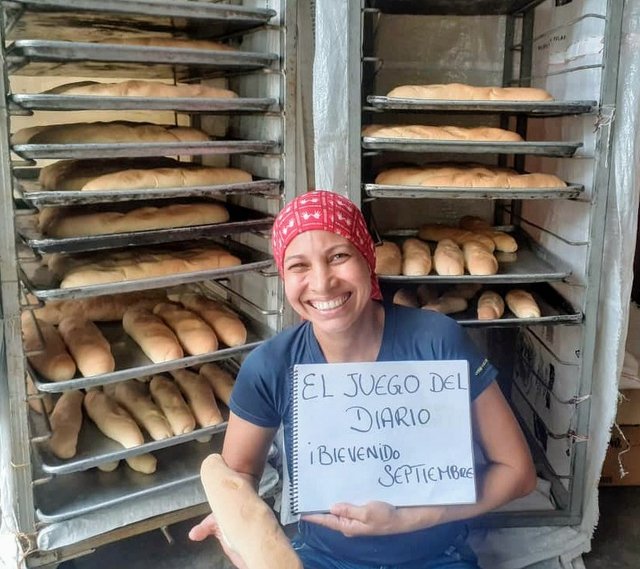 EL JUEGO DEL
DIARIO
¡BIENVENIDO
SEPTIEMBRE